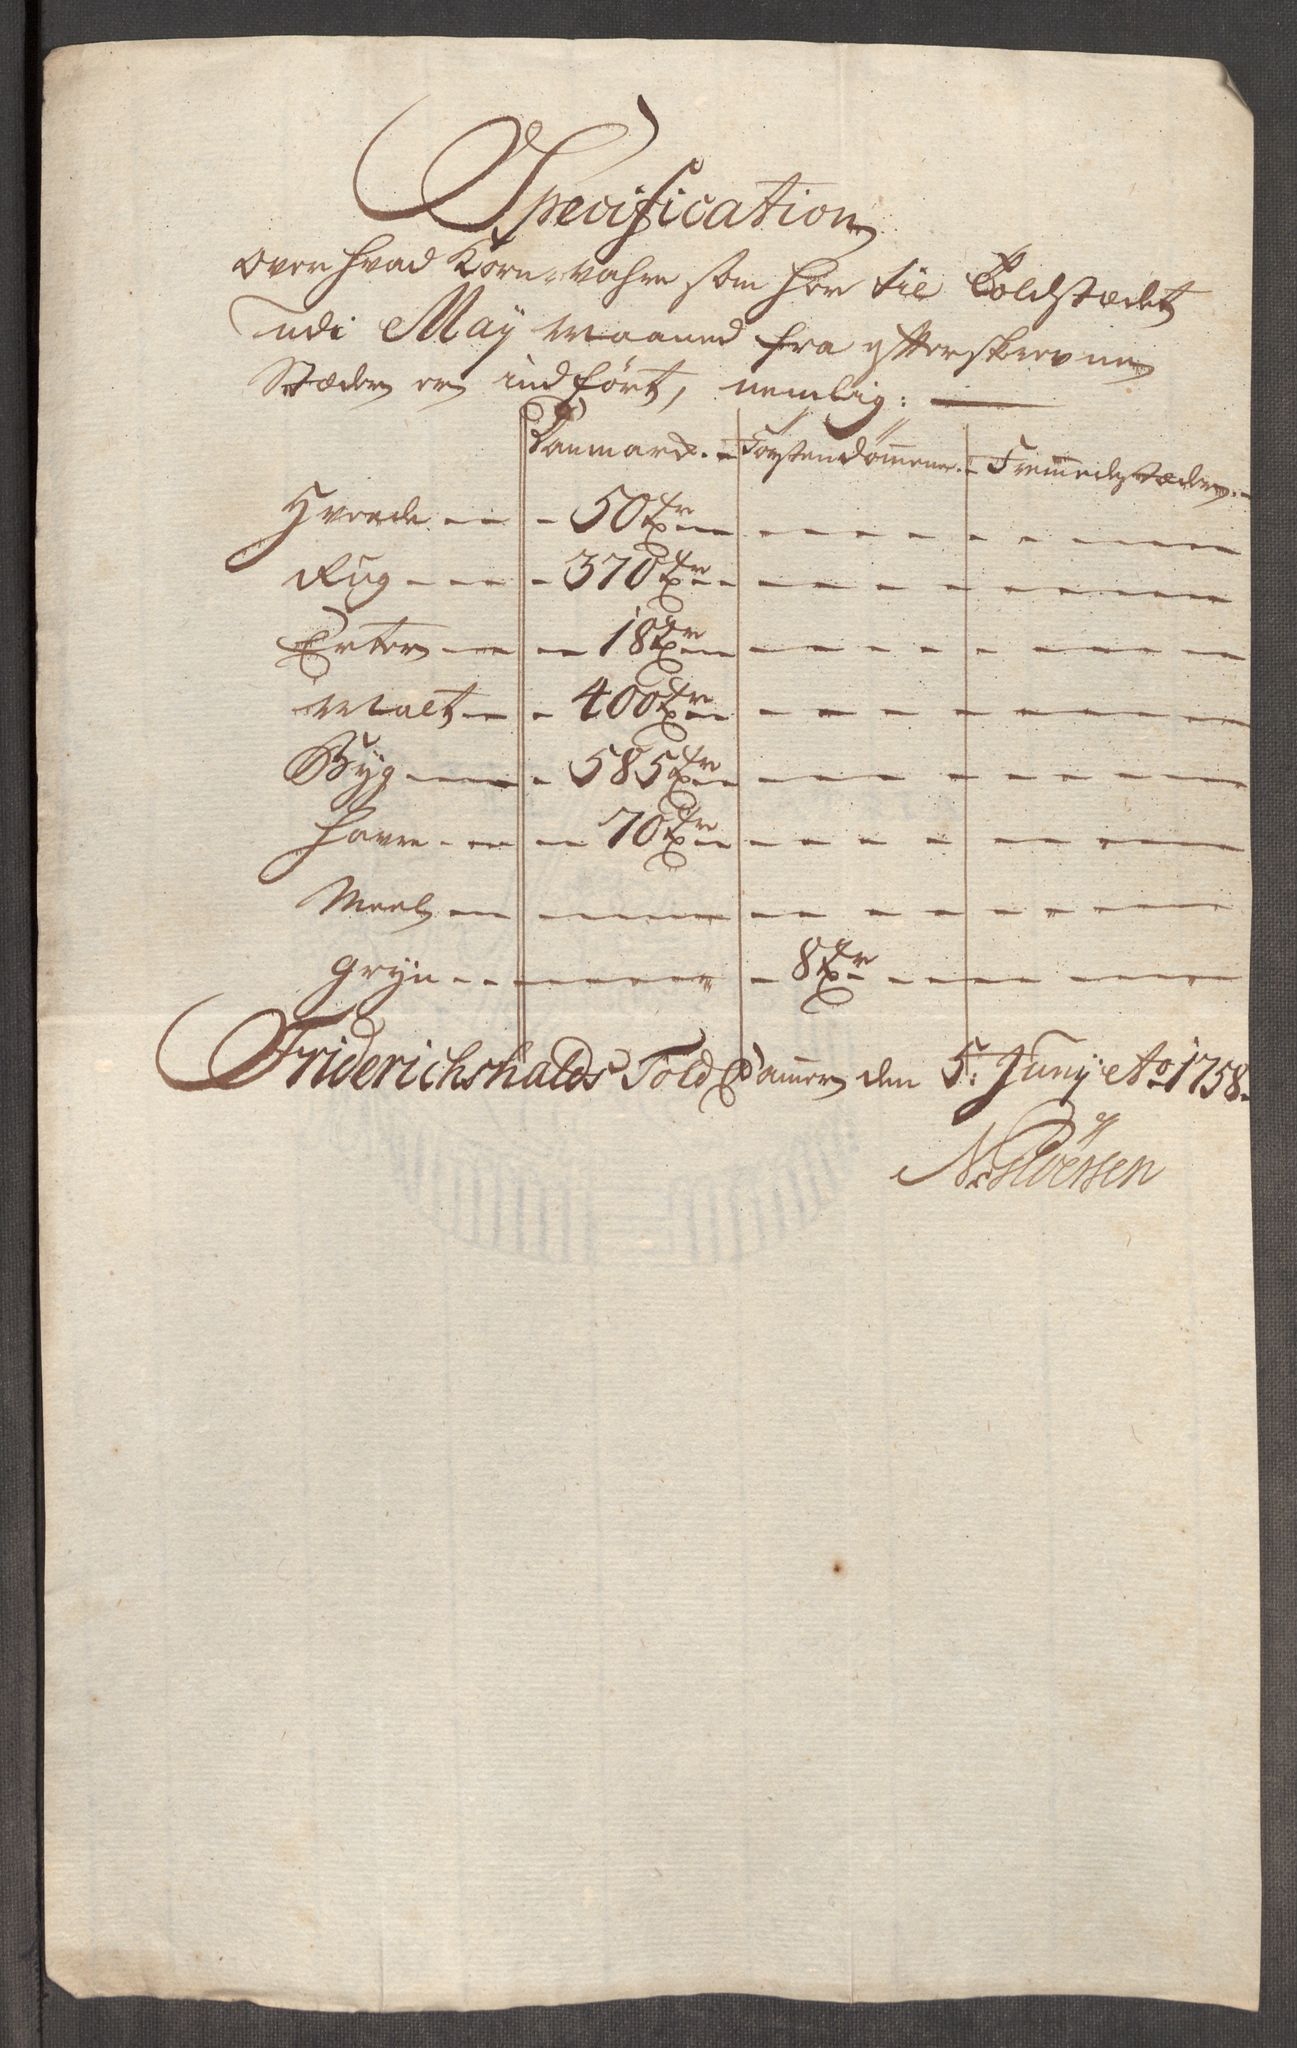 Specification
over hvad Korn-wahre som her til Toldstædet
udi May Maaned fra efterskrevne
Stæder er indført, nemlig:
Danmark. Førstendømmene. Fremedstæder.
Hvede 50 Tr
Rug 370 Tr
Erter 18 Tr
Malt 400 Tr
Byg 585 Tr
Havre 70 Tr
Meel
Gryn 8 Tr
Friderichshalds Told Cammer den 5. Junij Ao 1758.